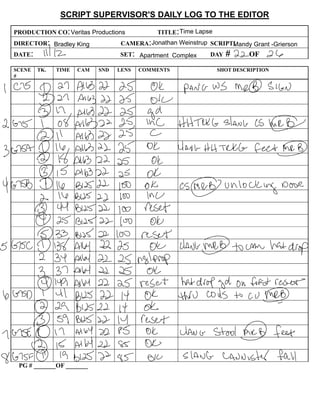 SCRIPT SUPERVISOR'S DAILY LOG TO THE EDITOR
PRODUCTION CO: Veritas Productions TITLE: Time Lapse
DIRECTOR: Bradley King CAMERA: Jonathan Wenstrup SCRIPT: Mandy Grant -Grierson
DATE: 11/2 SET: Apartment Complex DAY # 22 OF 26
SCENE # TK. TIME CAM SND LENS COMMENTS SHOT DESCRIPTION
1 G75 1 27 A163 22 25 OK PANG WS Mr B SIGN
2 27 A163 22 25 OK
3 17 A163 22 25 gd
2 G75 1 08 A163 22 25 INC HHTEKG SLANG CS Mr B
2 11 A163 22 25 C
3 G75A 1 16 A163 22 25 OK HHTEKG feet Mr B
2 18 A163 22 25 OK
3 15 A163 22 25 OK
4 G75B 1 16 B125 22 100 OK CS Mr B unlocking door
2 16 B125 22 100 INC
3 44 B125 22 100 reset
4 25 B125 22 100 OK
5 33 B125 22 100 reset
5 G75C 1 38 A164 22 25 OK UANG Mr B to cam hat drop
2 34 A164 22 25 ng/prop
3 37 A164 22 25 OK
4 149 A164 22 25 reset hat drop gd on first reset
6 G75D 1 41 B125 22 14 OK cods to CU Mr B
2 29 B125 22 14 OK
3 59 B125 22 14 reset
7 G75E 1 17 A164 22 85 OK UANG Stool Mr B feet
2 15 A164 22 85 OK
8 G75F 1 19 B125 22 85 OK SLANG CANNISTER fall
PG # ______ OF ______